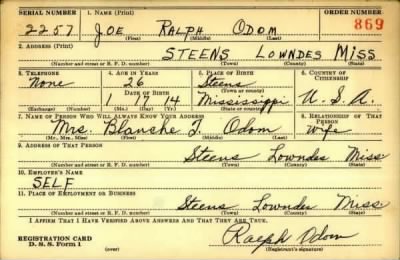 SERIAL NUMBER 1. NAME (Print) ORDER NUMBER
2257 JOE RALPH ODOM 869
(First) (Middle) (Last)
2. ADDRESS (Print)
STEENS LOWNDES MISS
(Number and street or R. F. D. number) (Town) (County) (State)
3. TELEPHONE 4. AGE IN YEARS 5. PLACE OF BIRTH 6. COUNTRY OF CITIZENSHIP
None 26 Steens
DATE OF BIRTH (Town or county)
1 17 14 Mississippi U.S.A.
(Exchange) (Number) (Mo.) (Day) (Yr.) (State or country)
7. NAME OF PERSON WHO WILL ALWAYS KNOW YOUR ADDRESS 8. RELATIONSHIP OF THAT PERSON
Mrs. Blanshe J. Odom Wife
(Mr., Mrs., Miss) (First) (Middle) (Last)
9. ADDRESS OF THAT PERSON
Steens Lowndes Miss
(Number and street or R. F. D. number) (Town) (County) (State)
10. EMPLOYER'S NAME
SELF
11. PLACE OF EMPLOYMENT OR BUSINESS
Steens Lowndes Miss.
(Number and street or R. F. D. number) (Town) (County) (State)
I AFFIRM THAT I HAVE VERIFIED ABOVE ANSWERS AND THAT THEY ARE TRUE.
REGISTRATION CARD Ralph Odom
D. S. S. Form 1 (over) (Registrant's signature)